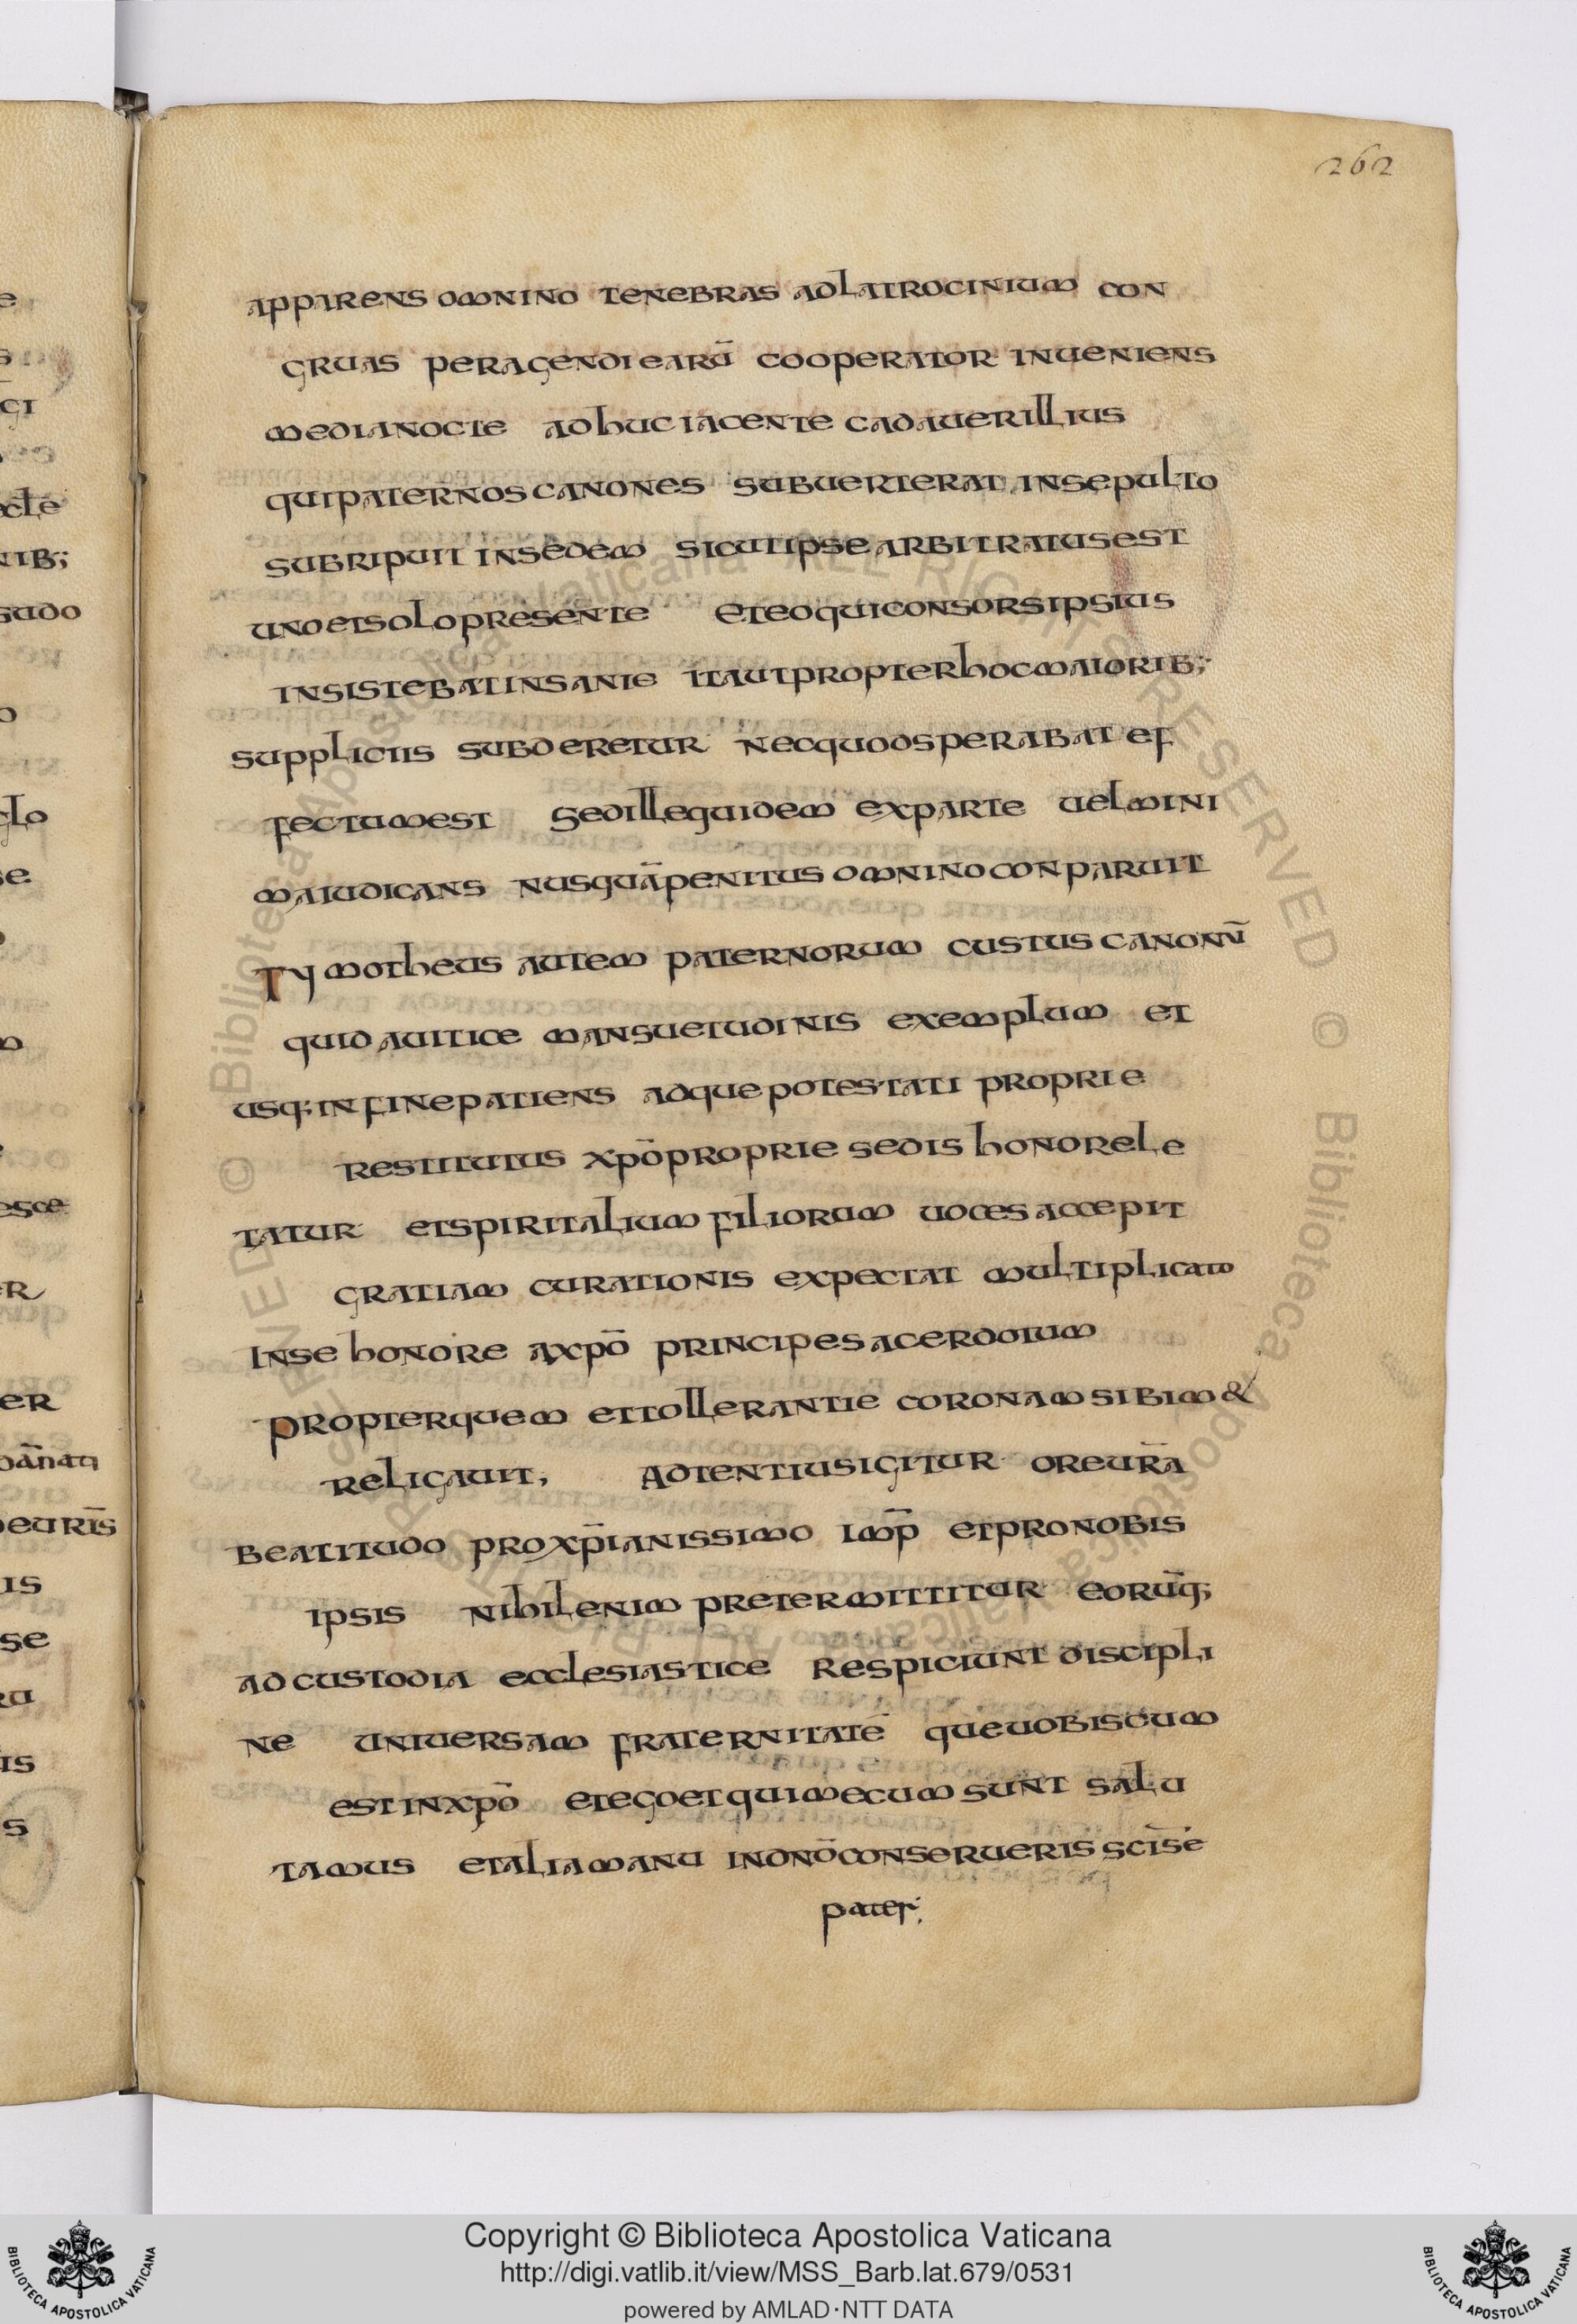 262
apparens omnino tenebras adlatrocinium con
gruas peragendi earū cooperator inueniens
medianocte adhuc iacente cadauerillius
quipaternoscanones subuerterat insepulto
subripuit insedem sicutipse arbitratusest
unoetsolopresente eteoquiconsorsipsius
insistebatinsanie itautpropterhocmaiorib;
suppliciis subderetur necquodsperabat ef
fectumest Sedillequidem exparte uelmini
maiudicans nusquāpenitus omninoconparuit
Tymotheus autem paternorum custus canonū
quidauitice mansuetudinis exemplum et
usq;infinepatiens adquepotestati proprie
restitutus xpōproprie sedis honorele
tatur etspiritalium filiorum uoces accepit
gratiam curationis expectat multiplicato
Inse honore axpō principesacerdotum
propterquem ettollerantie coronamsibim&
religauit; Adtentiusigitur oreur̄a
beatitudo proxp̄ianissimo imp̄ etpronobis
ipsis nihilenim pretermittitur eorūq;
ad custodia ecclesiastice Respiciunt discipli
ne uniuersam fraternitatē queuobiscum
est inxpō etegoetquimecum sunt salu
tamus etaliamanu indn̄oconserueris sc̄ise
pater;
Copyright © Biblioteca Apostolica Vaticana
http://digi.vatlib.it/view/MSS_Barb.lat.679/0531
powered by AMLAD·NTT DATA